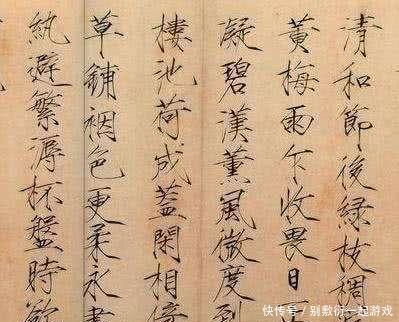 清和節後緑枝稠
黃梅雨乍收畏日
凝碧漢薰風微度到
樓池荷成蓋閑相倚
草鋪裀色更柔永晝
紈避繁溽杯盤時欲
快传号 / 别敷衍一起游戏